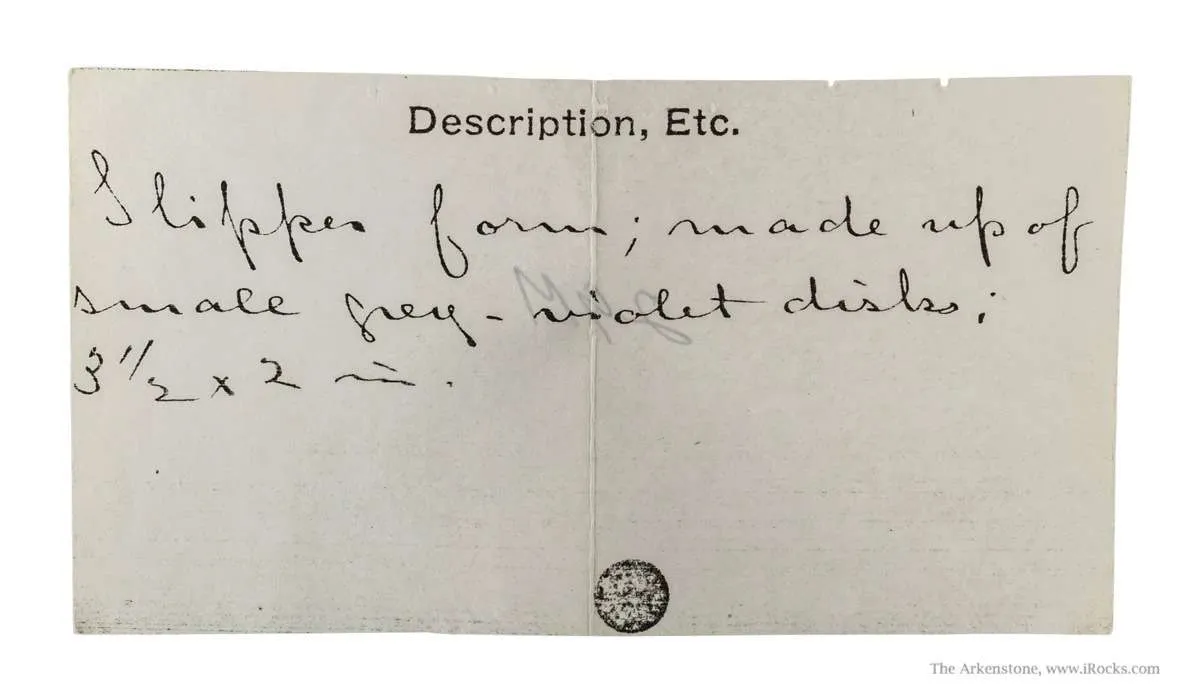 Description, Etc.
Slipper form; made up of
small grey-violet disks;
3 1/2 x 2 in.
The Arkenstone, www.iRocks.com